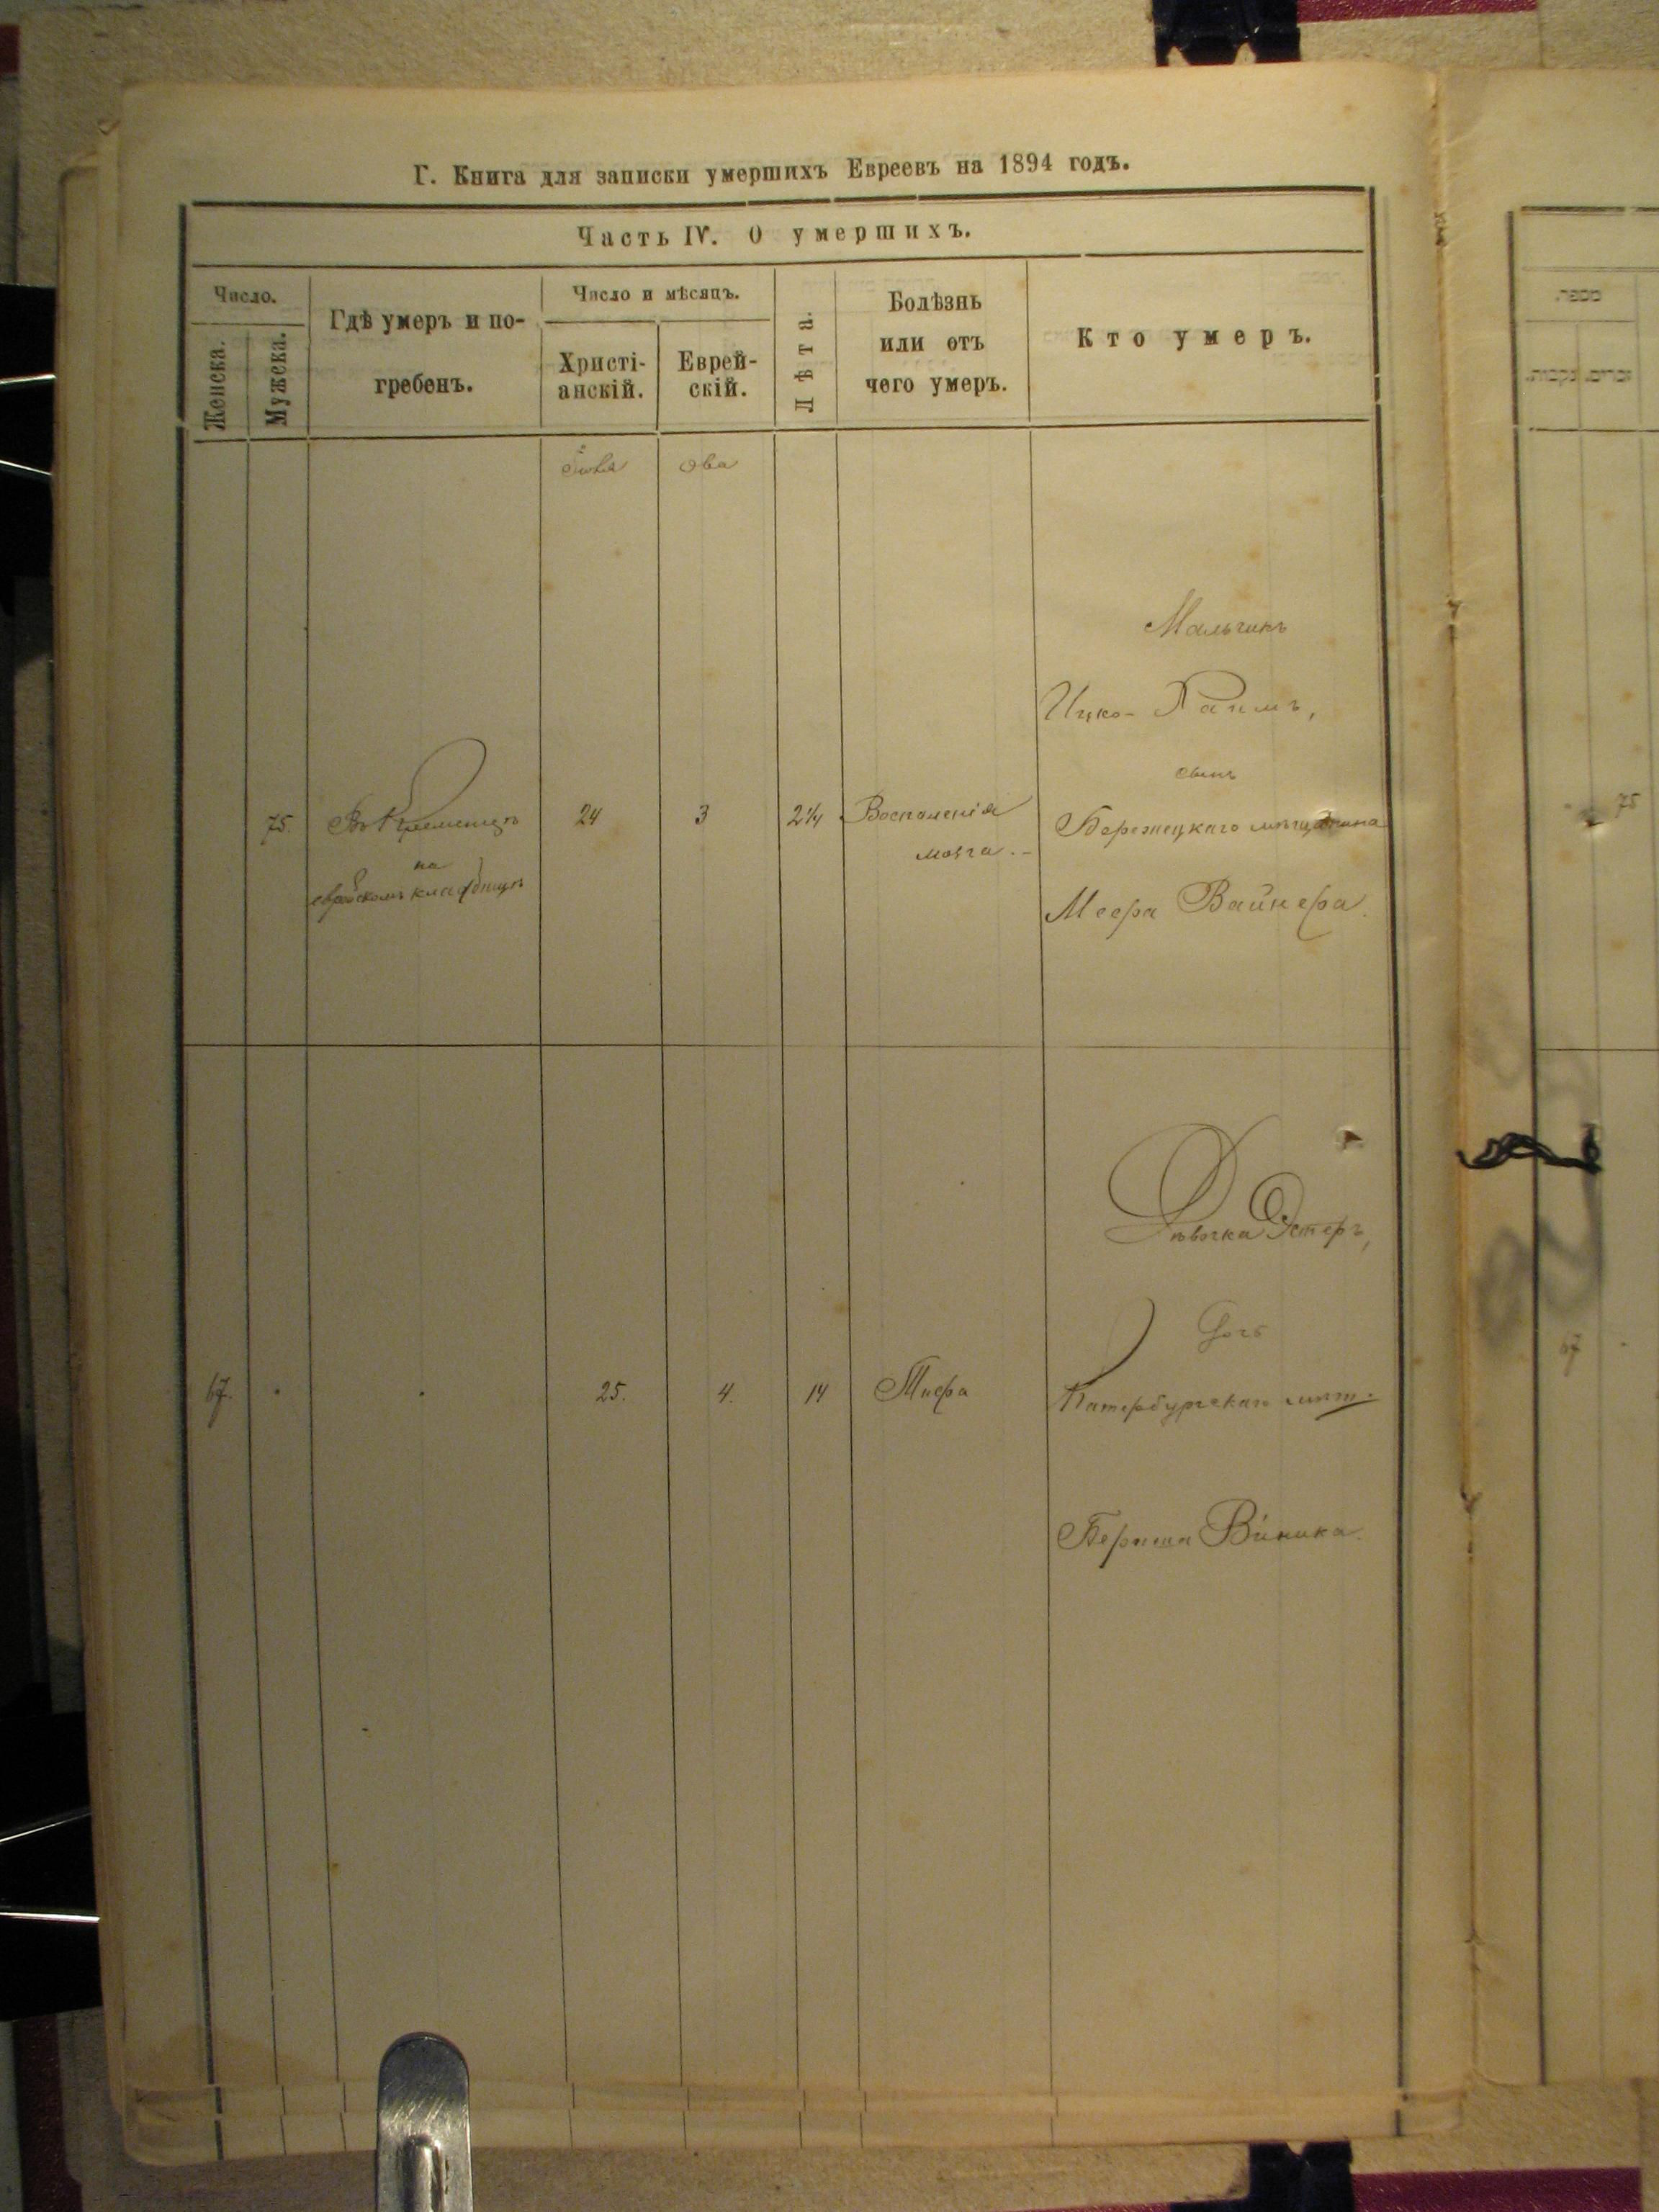 Г. Книга для записки умершихъ Евреевъ на 1894 годъ.
Часть IV. О умершихъ.
Число.
Женска.
Мужска.
Гдѣ умеръ и по-
гребенъ.
Число и мѣсяцъ.
Христі-
анскій.
Еврей-
скій.
Лѣта.
Болѣзнь
или отъ
чего умеръ.
Кто умеръ.
Іюля
Ова
Мальчикъ
Ицко-Хаимъ,
сынъ
75.
Въ Кременцѣ
на
еврейскомъ кладбищѣ
24
3
2¼
Воспаленія
мозга.
Бережецкаго мѣщанина
Меера Вайнера.
Дѣвочка Эстеръ,
Дочь
67.
25.
4.
14
Тифа
Катербургскаго мѣщ.
Бериша Виника.
מספר.
זכרים.
נקבות.
75
67